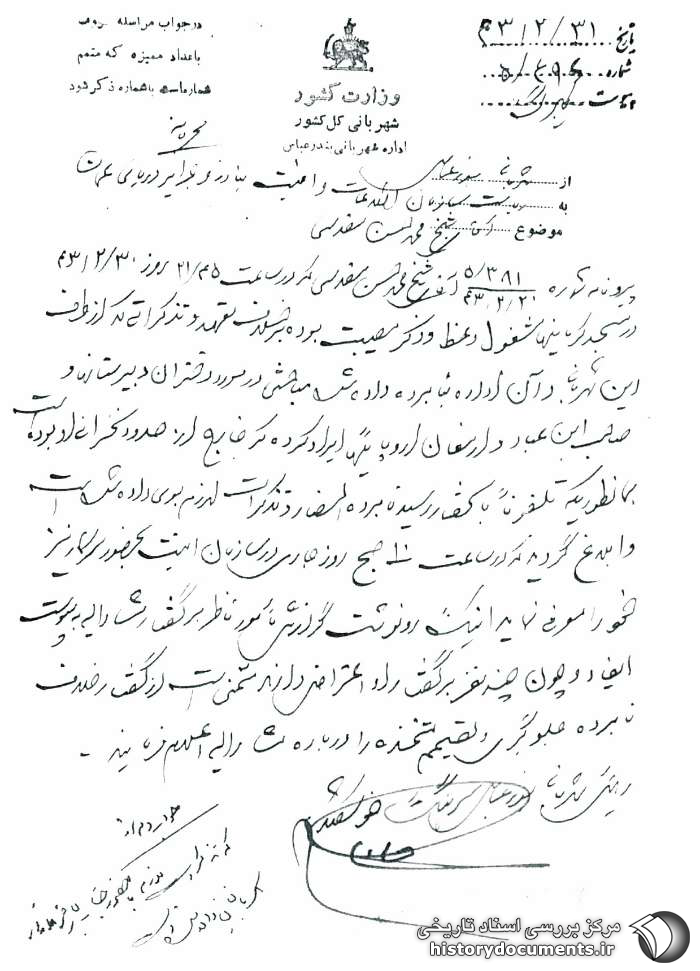 در جواب مراسله نمره
باعداد ممیزه که متمم
شماره است باشماره ذکر شود
وزارت کشور
شهربانی کل کشور
اداره شهربانی بندرعباس
تاریخ ۴۳/۲/۳۱
شماره
پیوست
محرمانه
از شهربانی بندرعباس
به ریاست سازمان اطلاعات و امنیت بنادر و جزایر دریای عمان
موضوع شیخ محمدحسن مقدسی
پیرو نامه شماره ۵/۳۸۱ ۴۳/۲/۲۰ آقای شیخ محمدحسن مقدسی که در ساعت ۲۱/۴۵ روز ۴۳/۲/۳۰
در مسجد مشغول وعظ و ذکر مصیبت بوده برخلاف تعهد و تذکراتی که از طرف
این شهربانی و آن اداره بنامبرده داده شده مباحثی در مورد دختران دبیرستانها و
صاحب ابن عباد و ارمغان اروپائیها ایراد کرده که خارج از حدود سخنرانی او بوده است
بهمانطوریکه تلفوناً باستحضار رسید نامبرده احضار و تذکرات لازم بوی داده شده است
و ابلاغ گردید که در ساعت ۱۱ صبح روز جاری در سازمان امنیت بحضور سرکار نیز
خود را معرفی نماید اینک رونوشت گزارش مأمور ناظر بر گفتار مشارالیه به پیوست
ایفاد و چون چند نفر بر گفتار او اعتراض دارند متمنی است از گفتار خلاف
نامبرده جلوگیری و تصمیم متخذه را درباره مشارالیه اعلام فرمایند -
رئیس شهربانی بندرعباس سرهنگ
مرکز بررسی اسناد تاریخی
historydocuments.ir